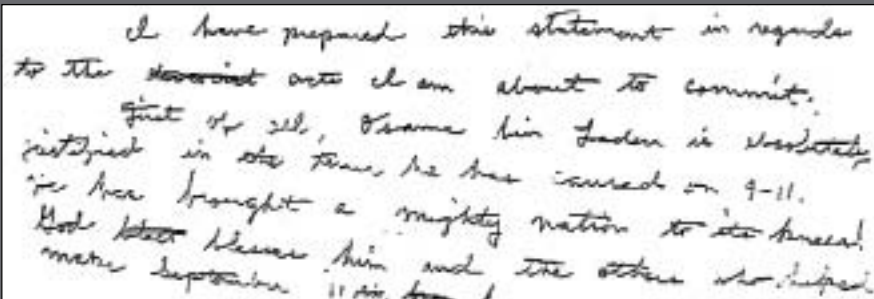 I have prepared this statement in regards
to the acts I am about to commit.
First of all, Osama bin Laden is absolutely
justified in the terror he has caused on 9-11.
He has brought a mighty nation to its knees!
God blesses him and the others who helped
make September 11th